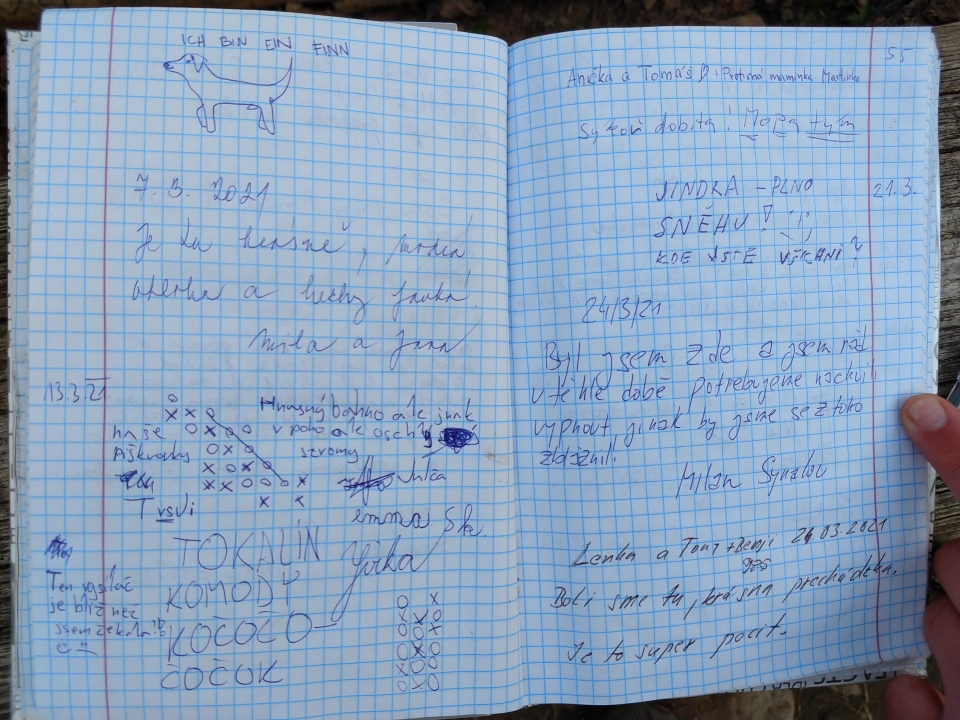 ICH BIN EIN FINN
7. 3. 2021
Je tu krásně, modrá
obloha a hezky fouká!
Míla a Jana
13.3.21
Hnusný bahno ale jinak
v poho ale oschlý
stromy
naše
piškvorky
vlhča
Trsvi
emma Sk.
Jirka
TOKALÍN
KOMODY
KOČOČO
ČOČOK
Ten vysílač
je blíž než
jsem čekala!
55
Anička a Tomáš D + Protivná maminka Martinka
Sýkoř dobita! Moza tým
JINDRA - PLNO 21.3.
SNĚHU!
KDE JSTE VŠICHNI?
24/3/21
Byl jsem zde a jsem rád
v téhle době potřebujeme na chvíli
vypnout jinak by jsme se z toho
zbláznili!
Milan
Lenka a Toni + Benji 24.03.2021
Boli sme tu, krásna prechádzka.
Je to super pocit.